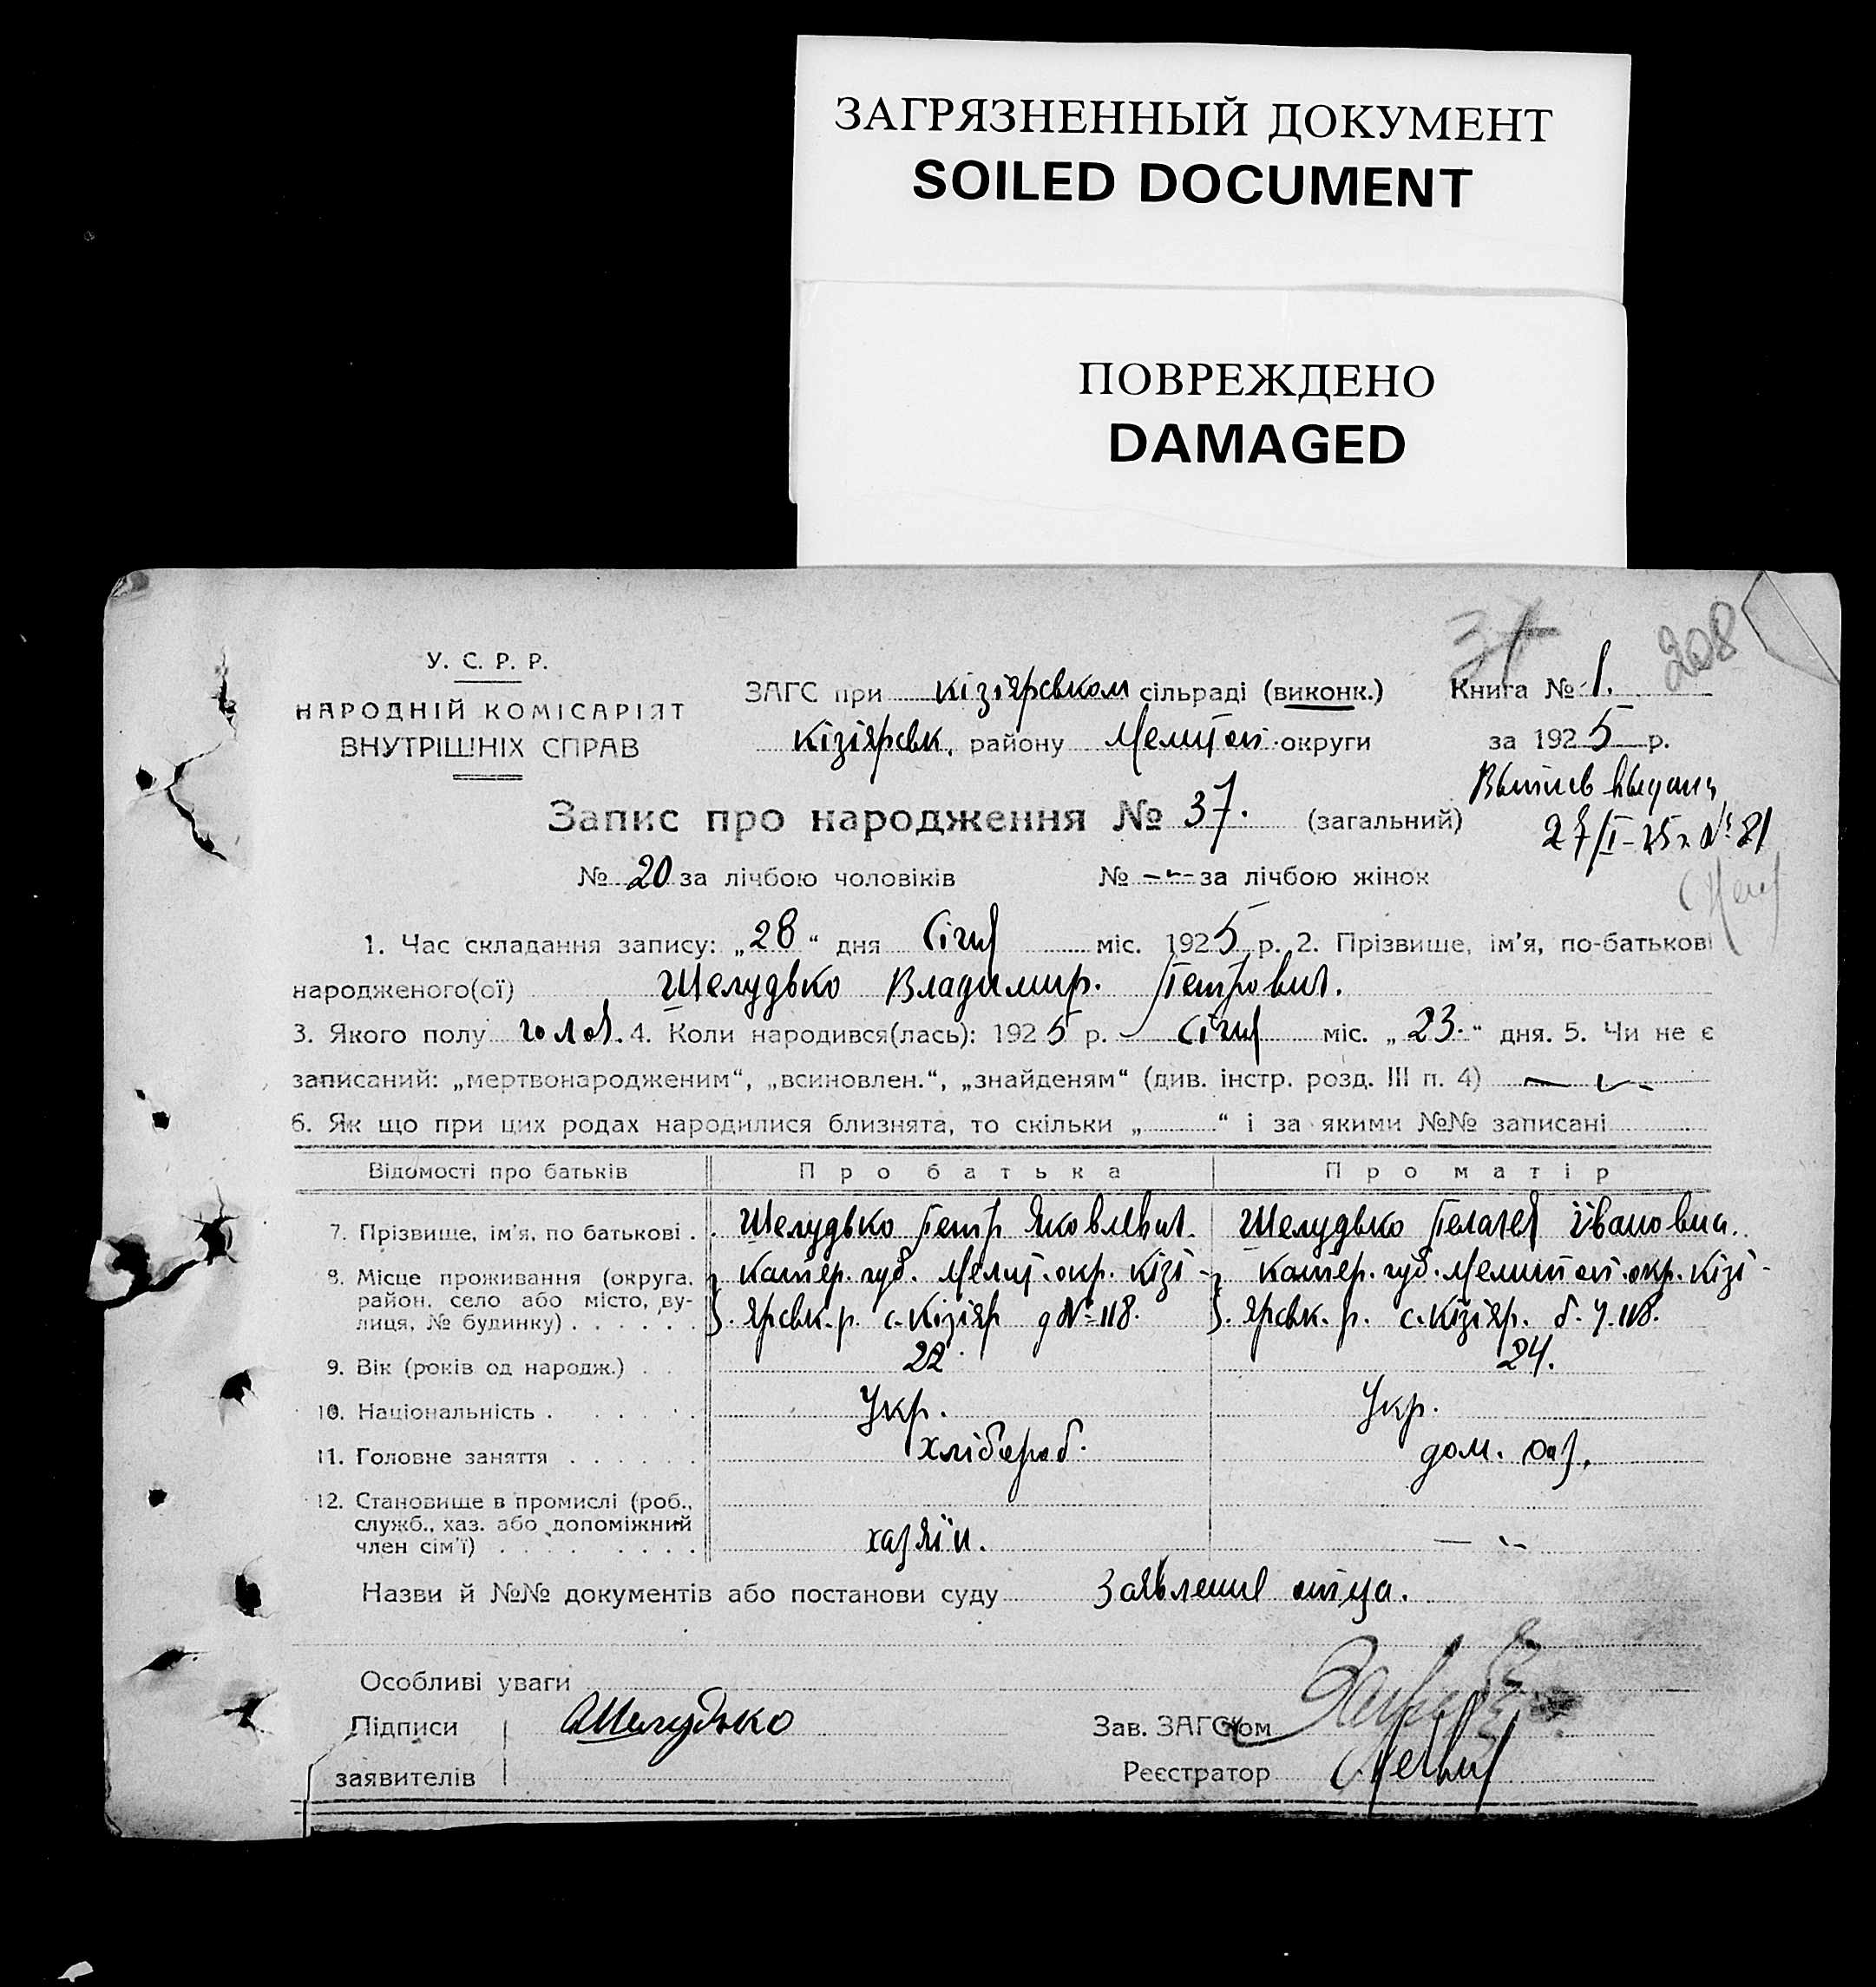 ЗАГРЯЗНЕННЫЙ ДОКУМЕНТ
SOILED DOCUMENT
ПОВРЕЖДЕНО
DAMAGED
37 208
У. С. Р. Р.
НАРОДНІЙ КОМІСАРІЯТ
ВНУТРІШНІХ СПРАВ
ЗАГС при Кізіярсвком сільраді (виконк.) Книга № 1.
Кізіярсвк. району Мелитоп. округи за 1925 р.
Запис про народження № 37. (загальний)
27/I-25 г. № 81
№ 20 за лічбою чоловіків № за лічбою жінок
1. Час складання запису: „28“ дня Січн міс. 1925 р. 2. Прізвище, ім'я, по-батькові
народженого(ої) Шелудько Владимир. Петрович.
3. Якого полу чолов. 4. Коли народився(лась): 1925 р. Січн міс. „23.“ дня. 5. Чи не є
записаний: „мертвонародженим“, „всиновлен.“, „знайденям“ (див. інстр. розд. III п. 4)
6. Як що при цих родах народилися близнята, то скільки „ “ і за якими №№ записані
Відомості про батьків Про батька Про матір
7. Прізвище, ім'я, по батькові . Шелудько Петр Яковлевич. Шелудько Пелагея Івановна.
8. Місце проживання (округа, Катер. губ. Мелит. окр. Кізі- Катер. губ. Мелитоп. окр. Кізі-
район, село або місто, ву-
лиця, № будинку) . . . . . . ярсвк. р. с. Кізіяр д № 118. ярсвк. р. с. Кізіяр. б. ч. 118.
9. Вік (років од народж.) . . 22 24.
10. Національність . . . . . . Укр. Укр.
11. Головне заняття . . . . . . хлібороб. дом. хаз.
12. Становище в промислі (роб.,
служб., хаз. або допоміжний
член сім'ї) . . . . . . . . хазяїн.
Назви й №№ документів або постанови суду Заявление отца.
Особливі уваги
Підписи Шелудько Зав. ЗАГСом
заявителів Реєстратор